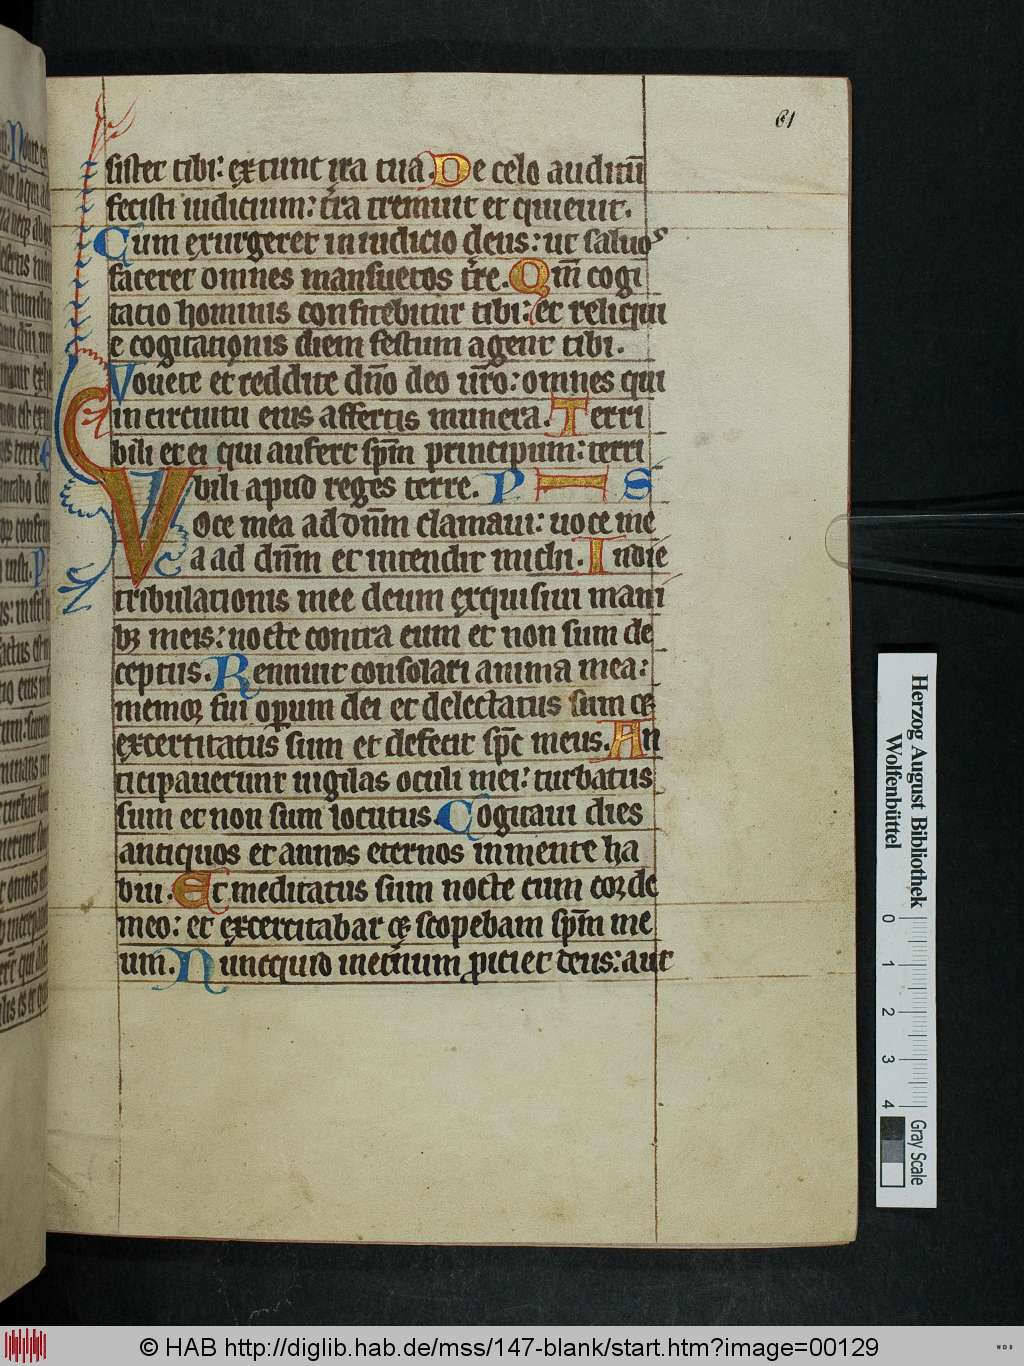 61
sistet tibi: extunc ira tua. De celo auditū
fecisti iudicium: t̄ra tremuit et quieuit.
Cum exurgeret in iudicio deus: ut saluos
faceret omnes mansuetos t̄re. Qm̄ cogi
tatio hominis confitebitur tibi: et reliqui
e cogitationis diem festum agent tibi.
Vouete et reddite dn̄o deo ur̄o: omnes qui
in circuitu eius affertis munera. Terri
bili et ei qui aufert sp̄m principum: terri
bili apud reges terre. P S
Voce mea ad dn̄m clamaui: uoce me
a ad dn̄m et intendit michi. In die
tribulationis mee deum exquisiui mani
bꝫ meis: nocte contra eum et non sum de
ceptus. Rennuit consolari anima mea:
memoꝝ fui oꝑum dei et delectatus sum
excertitatus sum et defecit sp̄c meus. An
ticipauerunt uigilas oculi mei: turbatus
sum et non sum locutus. Cogitaui dies
antiquos et annos eternos in mente ha
bui. Et meditatus sum nocte cum coꝛde
meo: et excercitabar scopebam sp̄m me
um. Nuncquid in et̄num ꝓiciet deus: aut
Herzog August Bibliothek
Wolfenbüttel
0 1 2 3 4
Gray Scale
© HAB http://diglib.hab.de/mss/147-blank/start.htm?image=00129